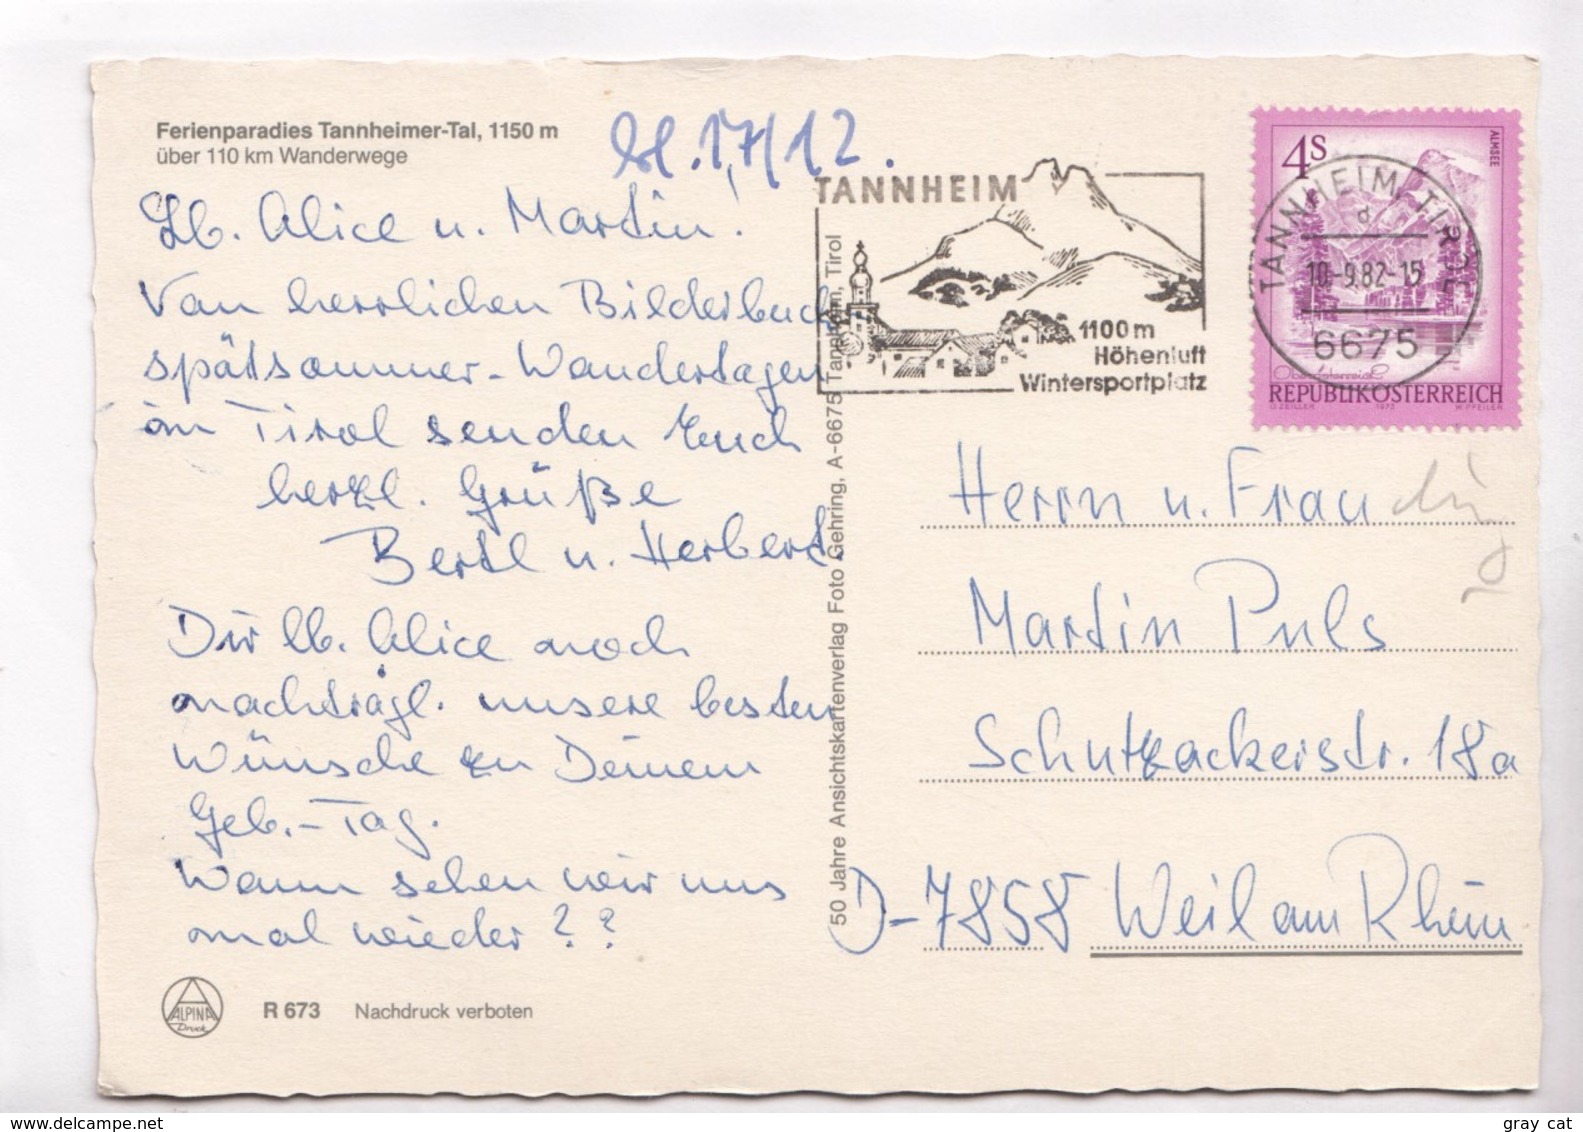 Ferienparadies Tannheimer-Tal, 1150 m
über 110 km Wanderwege
17/12.
Lb. Alice u. Martin!
Von herrlichen Bilderbuch-
spätsommer-Wandertagen
in Tirol senden Euch
herzl. Grüße
Bertl u. Herbert.
Dir lb. Alice noch
nachträgl. unsere besten
Wünsche zu Deinem
Geb.-Tag.
Wann sehen wir uns
mal wieder??
ALPINA
Druck
R 673 Nachdruck verboten
50 Jahre Ansichtskartenverlag Foto Gehring, A-6675 Tannheim, Tirol
TANNHEIM
1100m
Höhenluft
Wintersportplatz
4S
ALMSEE
TANNHEIM, TIROL
d
10.-9.82-15
6675
Oberösterreich
REPUBLIK ÖSTERREICH
O. ZEILLER 1973 W. PFEILER
Herrn u. Frau
Martin Puls
Schutzackerstr. 18a
D-7858 Weil am Rhein
www.delcampe.net
gray cat